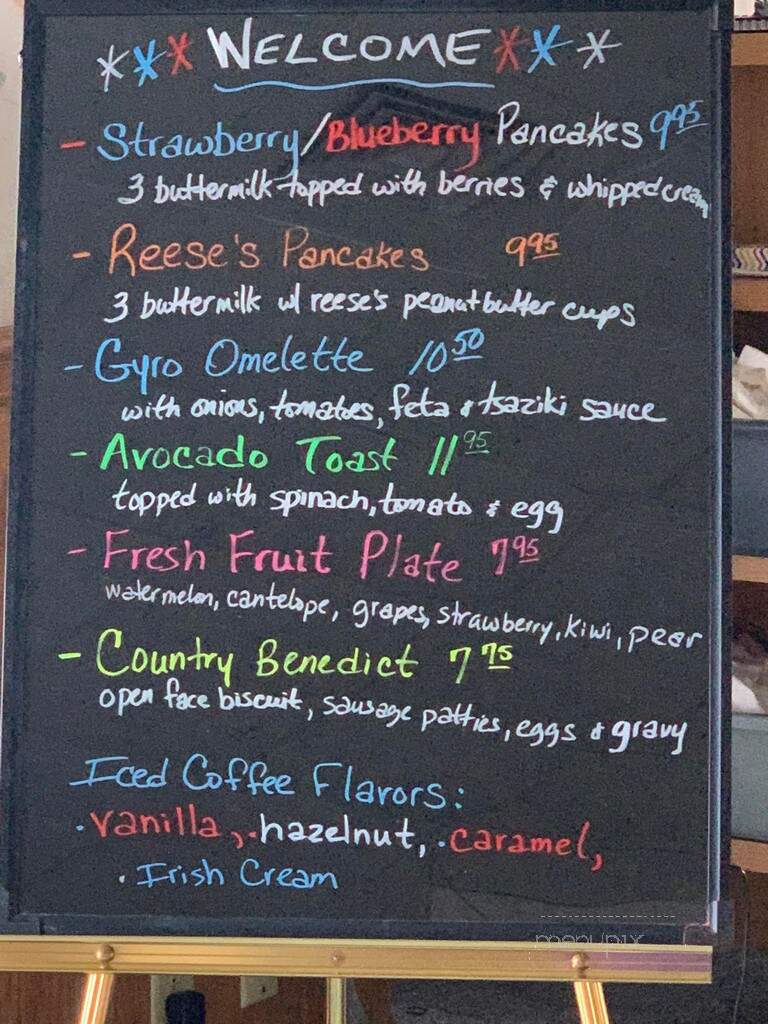 *** WELCOME ***
- Strawberry/Blueberry Pancakes 9.95
3 buttermilk topped with berries & whipped cream
- Reese's Pancakes 9.95
3 buttermilk w/ reese's peanut butter cups
- Gyro Omelette 10.50
with onions, tomatoes, feta & tsaziki sauce
- Avocado Toast 11.95
topped with spinach, tomato & egg
- Fresh Fruit Plate 7.95
watermelon, cantelope, grapes, strawberry, kiwi, pear
- Country Benedict 7.75
open face biscuit, sausage patties, eggs & gravy
Iced Coffee Flavors:
· vanilla, · hazelnut, · caramel,
· Irish Cream
menupix